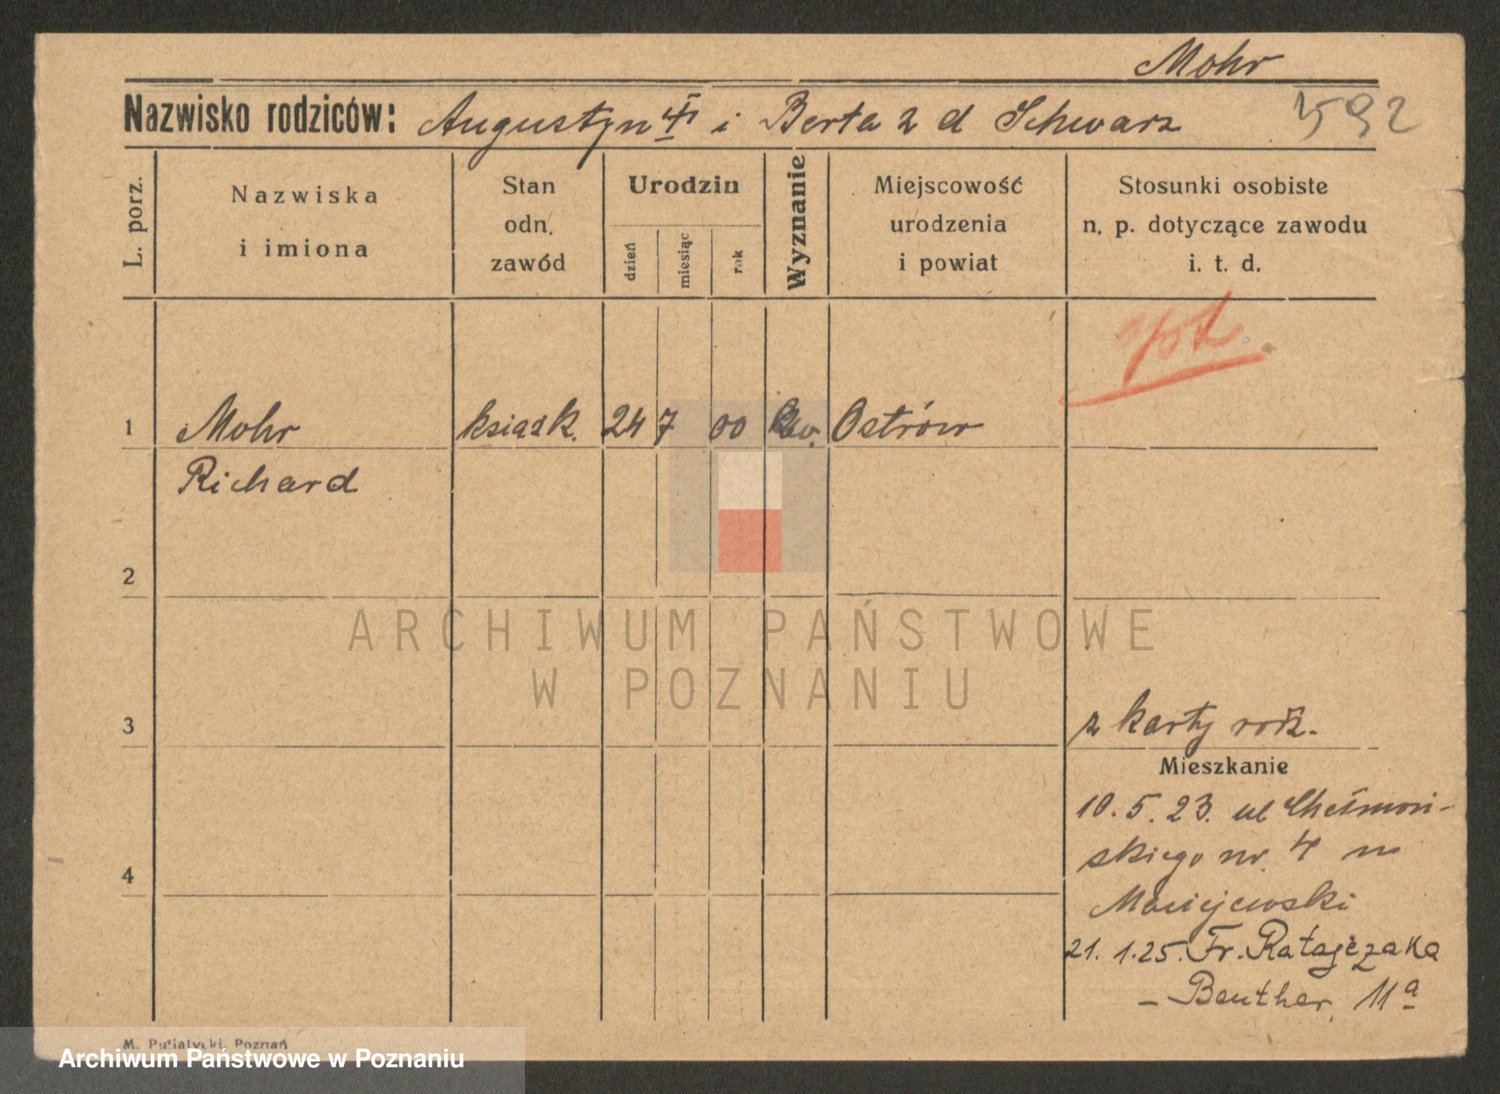 Mohr
Nazwisko rodziców: Augustyn i Berta z d Schwarz
L. porz.
Nazwiska
i imiona
Stan
odn.
zawód
Urodzin
dzień
miesiąc
rok
Wyznanie
Miejscowość
urodzenia
i powiat
Stosunki osobiste
n. p. dotyczące zawodu
i. t. d.
1 Mohr książk. 24 7 00 Ostrów
Richard
2
3 z karty rodz.
Mieszkanie
10. 5. 23. ul Chełmoń-
skiego nr. 4
Maciejewski
4
21. 1. 25. Fr. Ratajczaka
- Beuther, 11a
M. Putiatycki, Poznań
ARCHIWUM PAŃSTWOWE
W POZNANIU
Archiwum Państwowe w Poznaniu